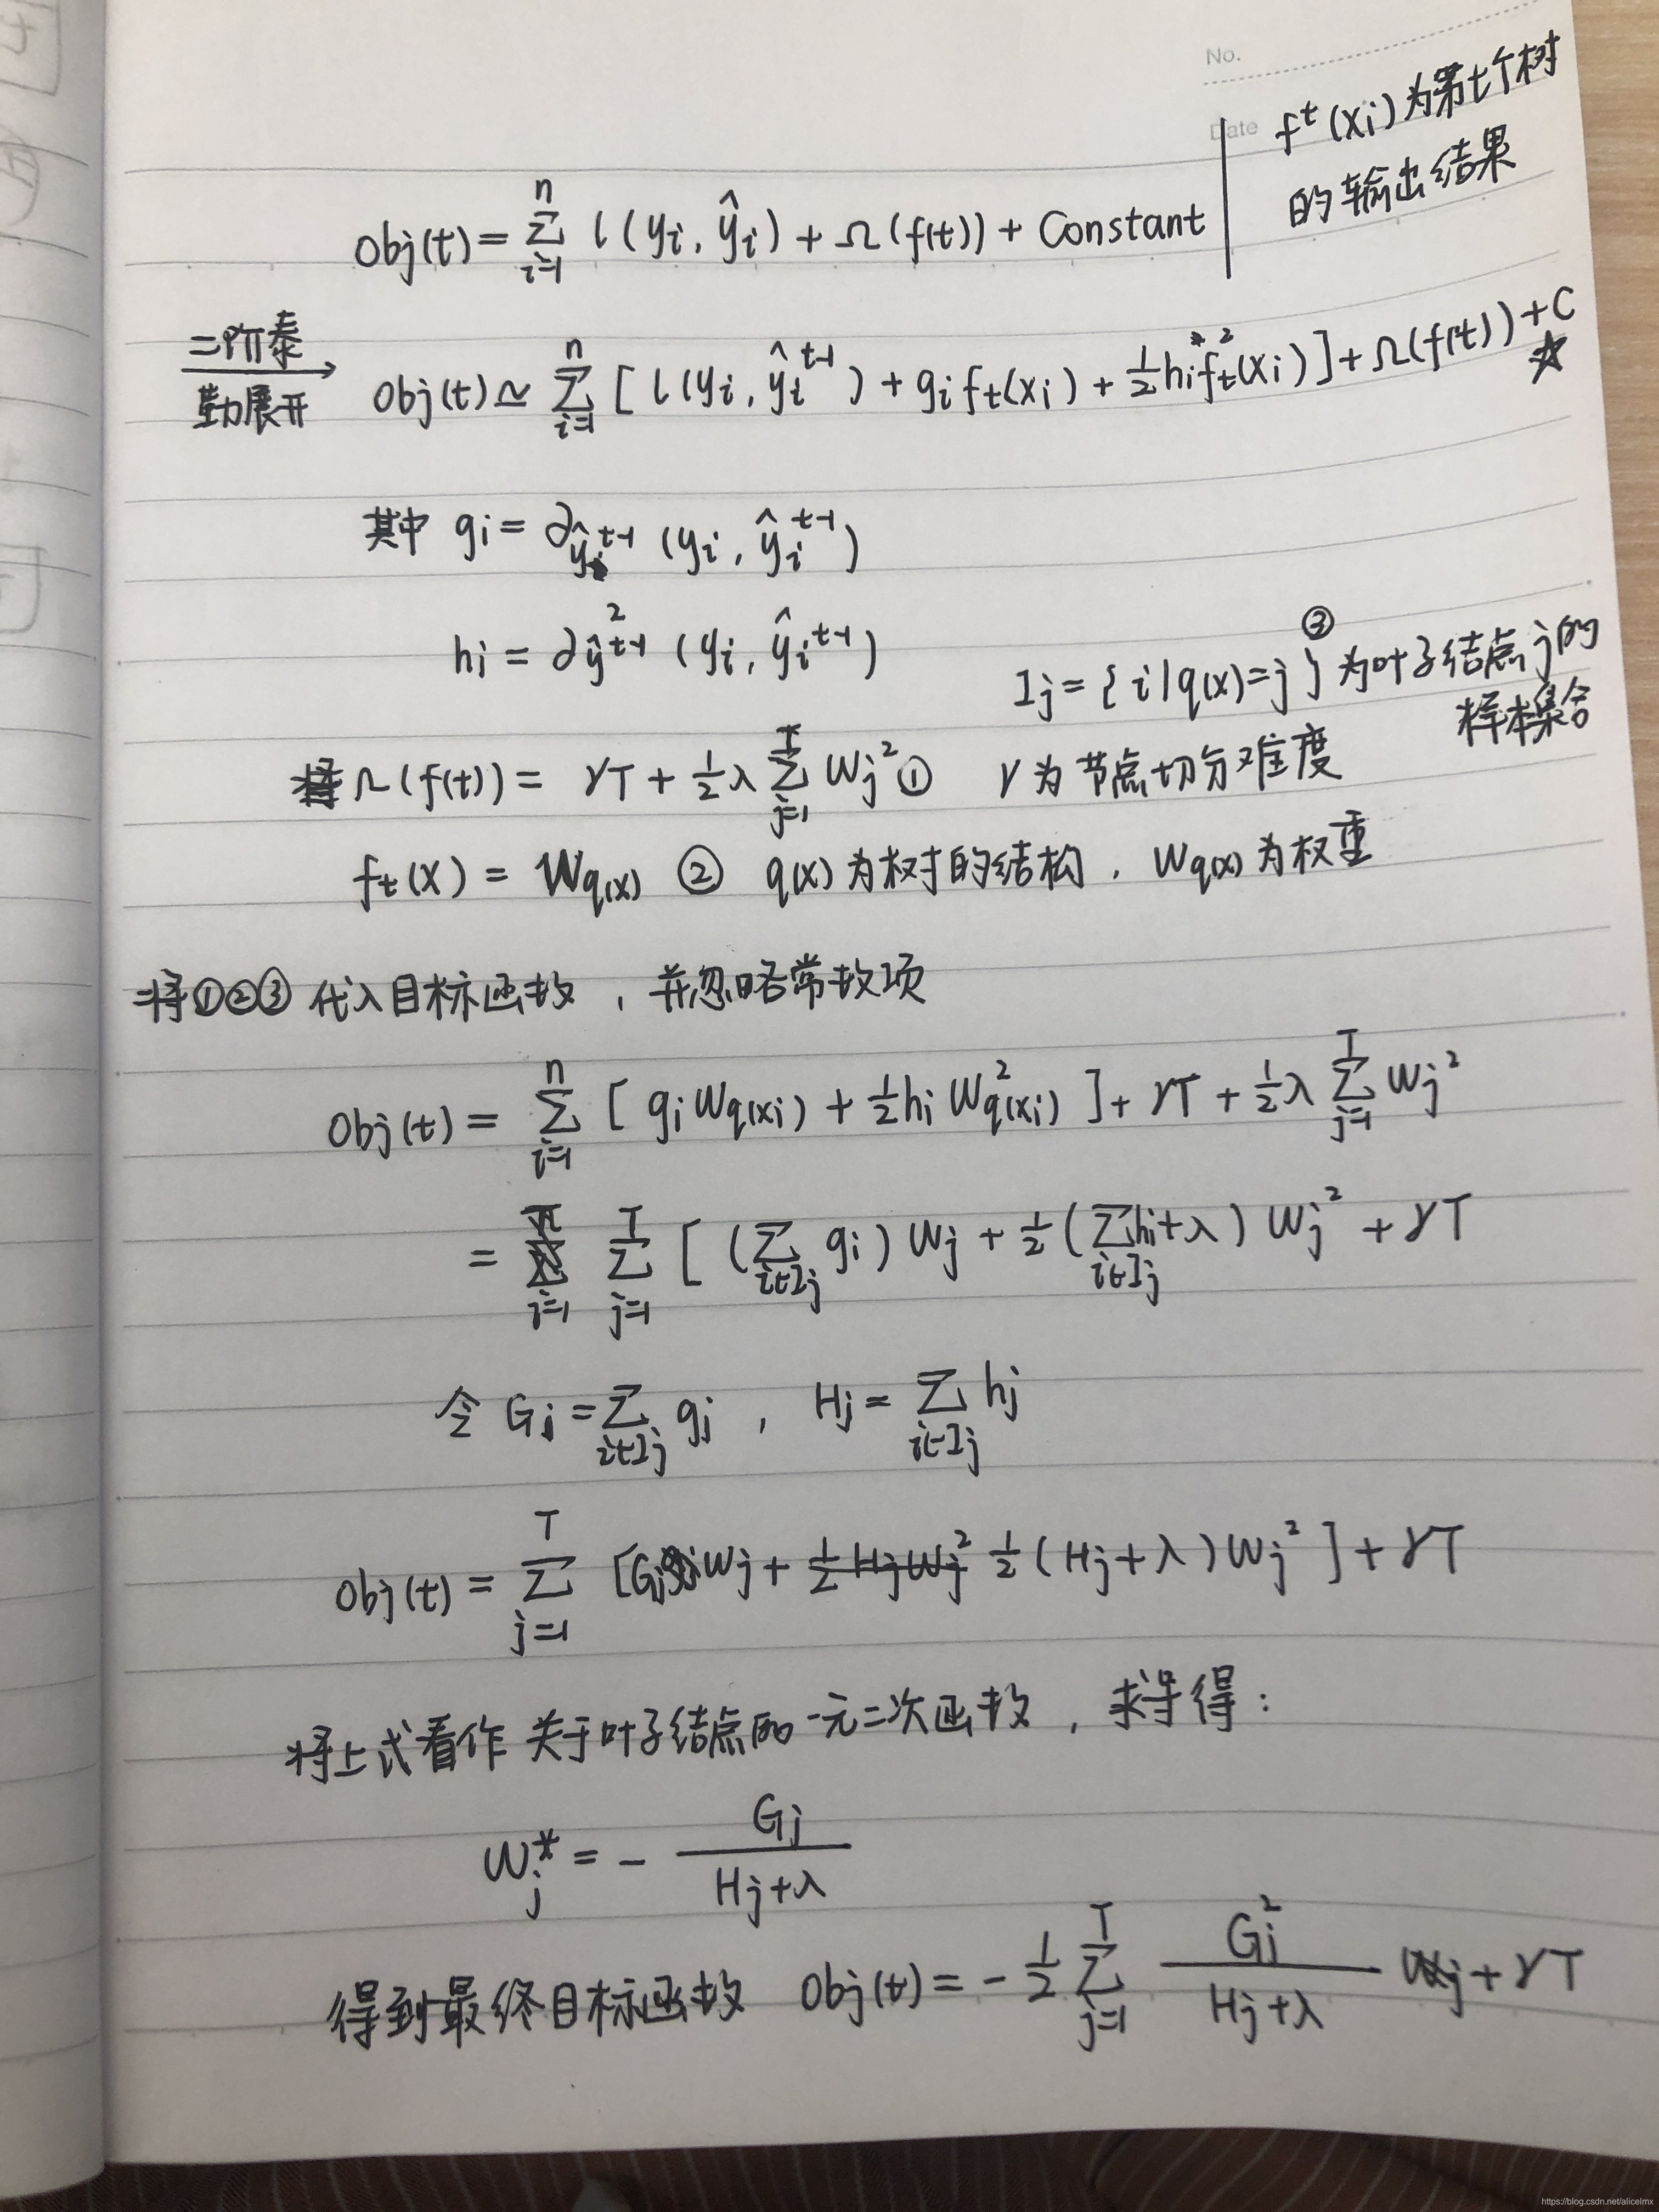 No.
Date
fᵗ(xi)为第t个树
的输出结果
Obj(t) = Σ_{i=1}^{n} l(yi, ŷi) + Ω(f(t)) + Constant
二阶泰
勒展开
Obj(t) ≃ Σ_{i=1}^{n} [l(yi, ŷi^{t-1}) + gi ft(xi) + ½ hi ft²(xi)] + Ω(f(t)) + C
☆
其中 gi = ∂_{ŷ^{t-1}} (yi, ŷi^{t-1})
hi = ∂²_{ŷ^{t-1}} (yi, ŷi^{t-1})
Ij = {i|q(x)=j} ③ 为叶子结点j的
样本集合
将Ω(f(t)) = γT + ½λ Σ_{j=1}^{T} Wj² ① γ为节点切分难度
ft(x) = Wq(x) ② q(x)为树的结构, Wq(x)为权重
将①②③代入目标函数, 并忽略常数项
Obj(t) = Σ_{i=1}^{n} [gi Wq(xi) + ½ hi W²q(xi)] + γT + ½λ Σ_{j=1}^{T} Wj²
= Σ_{j=1}^{T} [(Σ_{i∈Ij} gi) Wj + ½(Σ_{i∈Ij} hi+λ) Wj² + γT
令 Gj = Σ_{i∈Ij} gj, Hj = Σ_{i∈Ij} hj
Obj(t) = Σ_{j=1}^{T} [Gj Wj + ½(Hj+λ)Wj²] + γT
将上式看作关于叶子结点的一元二次函数, 求导得:
Wj* = - Gj / (Hj+λ)
得到最终目标函数 Obj(t) = -½ Σ_{j=1}^{T} Gj² / (Hj+λ) + γT
https://blog.csdn.net/alicelmx